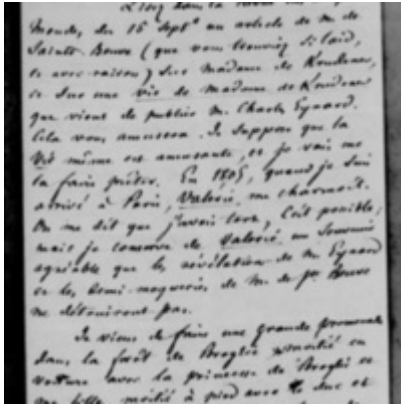 Lisez dans la
Monde, du 15 Sept.e un article de M. de
Sainte-Beuve (que vous trouviez si laid,
et avec raison) sur Madame de Krudener,
et sur une vie de Madame de Krudener
que vient de publier M. Charles Eynard.
Cela vous amusera. Je suppose que la
Vie même est amusante, et je vais me
la faire prêter. En 1805, quand je suis
arrivé à Paris, Valérie me charmait.
On me dit que j'avais tort, c'est possible;
mais je conserve de Valérie un souvenir
agréable que les révélations de M. Eynard
et les demi-moqueries de M. de Ste Beuve
ne détruiront pas.
Je viens de faire une grande promenade
dans la forêt de Broglie, moitié en
voiture avec la princesse de Broglie et
sa fille, moitié à pied avec le duc et